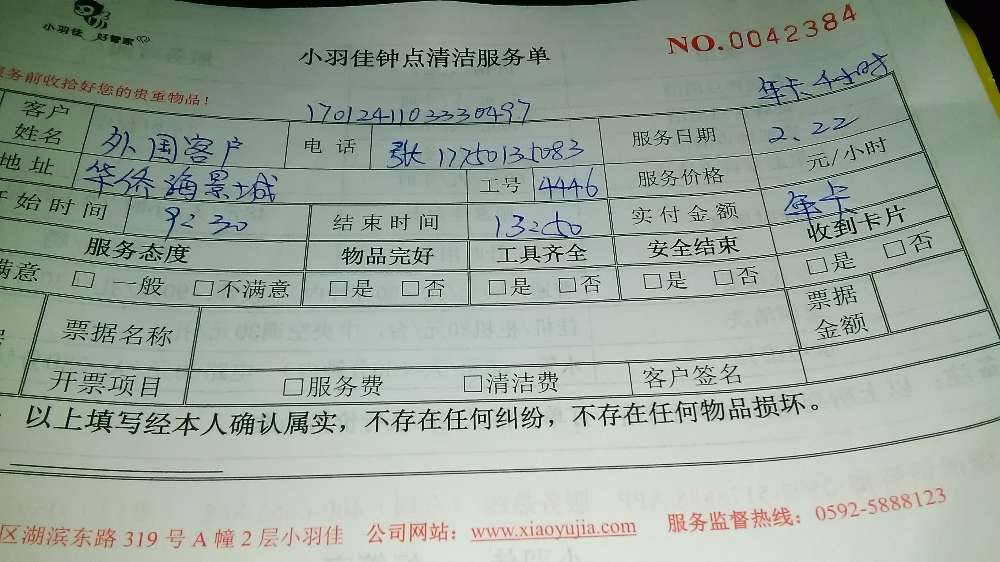 小羽佳 好管家
小羽佳钟点清洁服务单
NO.0042384
服务前收拾好您的贵重物品！
1701241103330497
年卡4小时
客户姓名 外国客户 电话 张17750135083 服务日期 2.22
地址 华侨海景城 工号 4446 服务价格 元/小时
开始时间 9:30 结束时间 13:50 实付金额 年卡
服务态度 物品完好 工具齐全 安全结束 收到卡片
满意 □一般 □不满意 □是 □否 □是 □否 □是 □否 □是 □否
票据名称 票据金额
开票项目 □服务费 □清洁费 客户签名
以上填写经本人确认属实，不存在任何纠纷，不存在任何物品损坏。
区湖滨东路319号A幢2层小羽佳 公司网站：www.xiaoyujia.com 服务监督热线：0592-5888123